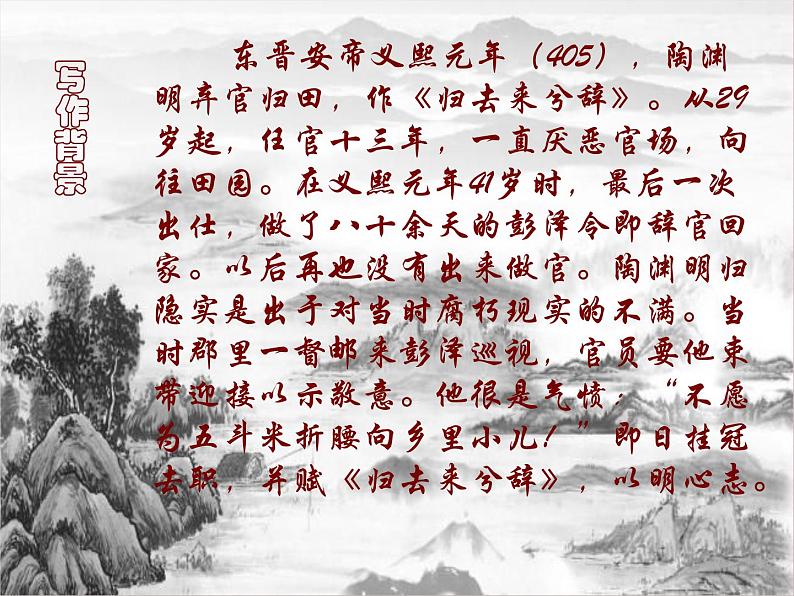 写作背景
东晋安帝义熙元年（405），陶渊
明弃官归田，作《归去来兮辞》。从29
岁起，任官十三年，一直厌恶官场，向
往田园。在义熙元年41岁时，最后一次
出仕，做了八十余天的彭泽令即辞官回
家。以后再也没有出来做官。陶渊明归
隐实是出于对当时腐朽现实的不满。当
时郡里一督邮来彭泽巡视，官员要他束
带迎接以示敬意。他很是气愤：“不愿
为五斗米折腰向乡里小儿！”即日挂冠
去职，并赋《归去来兮辞》，以明心志。